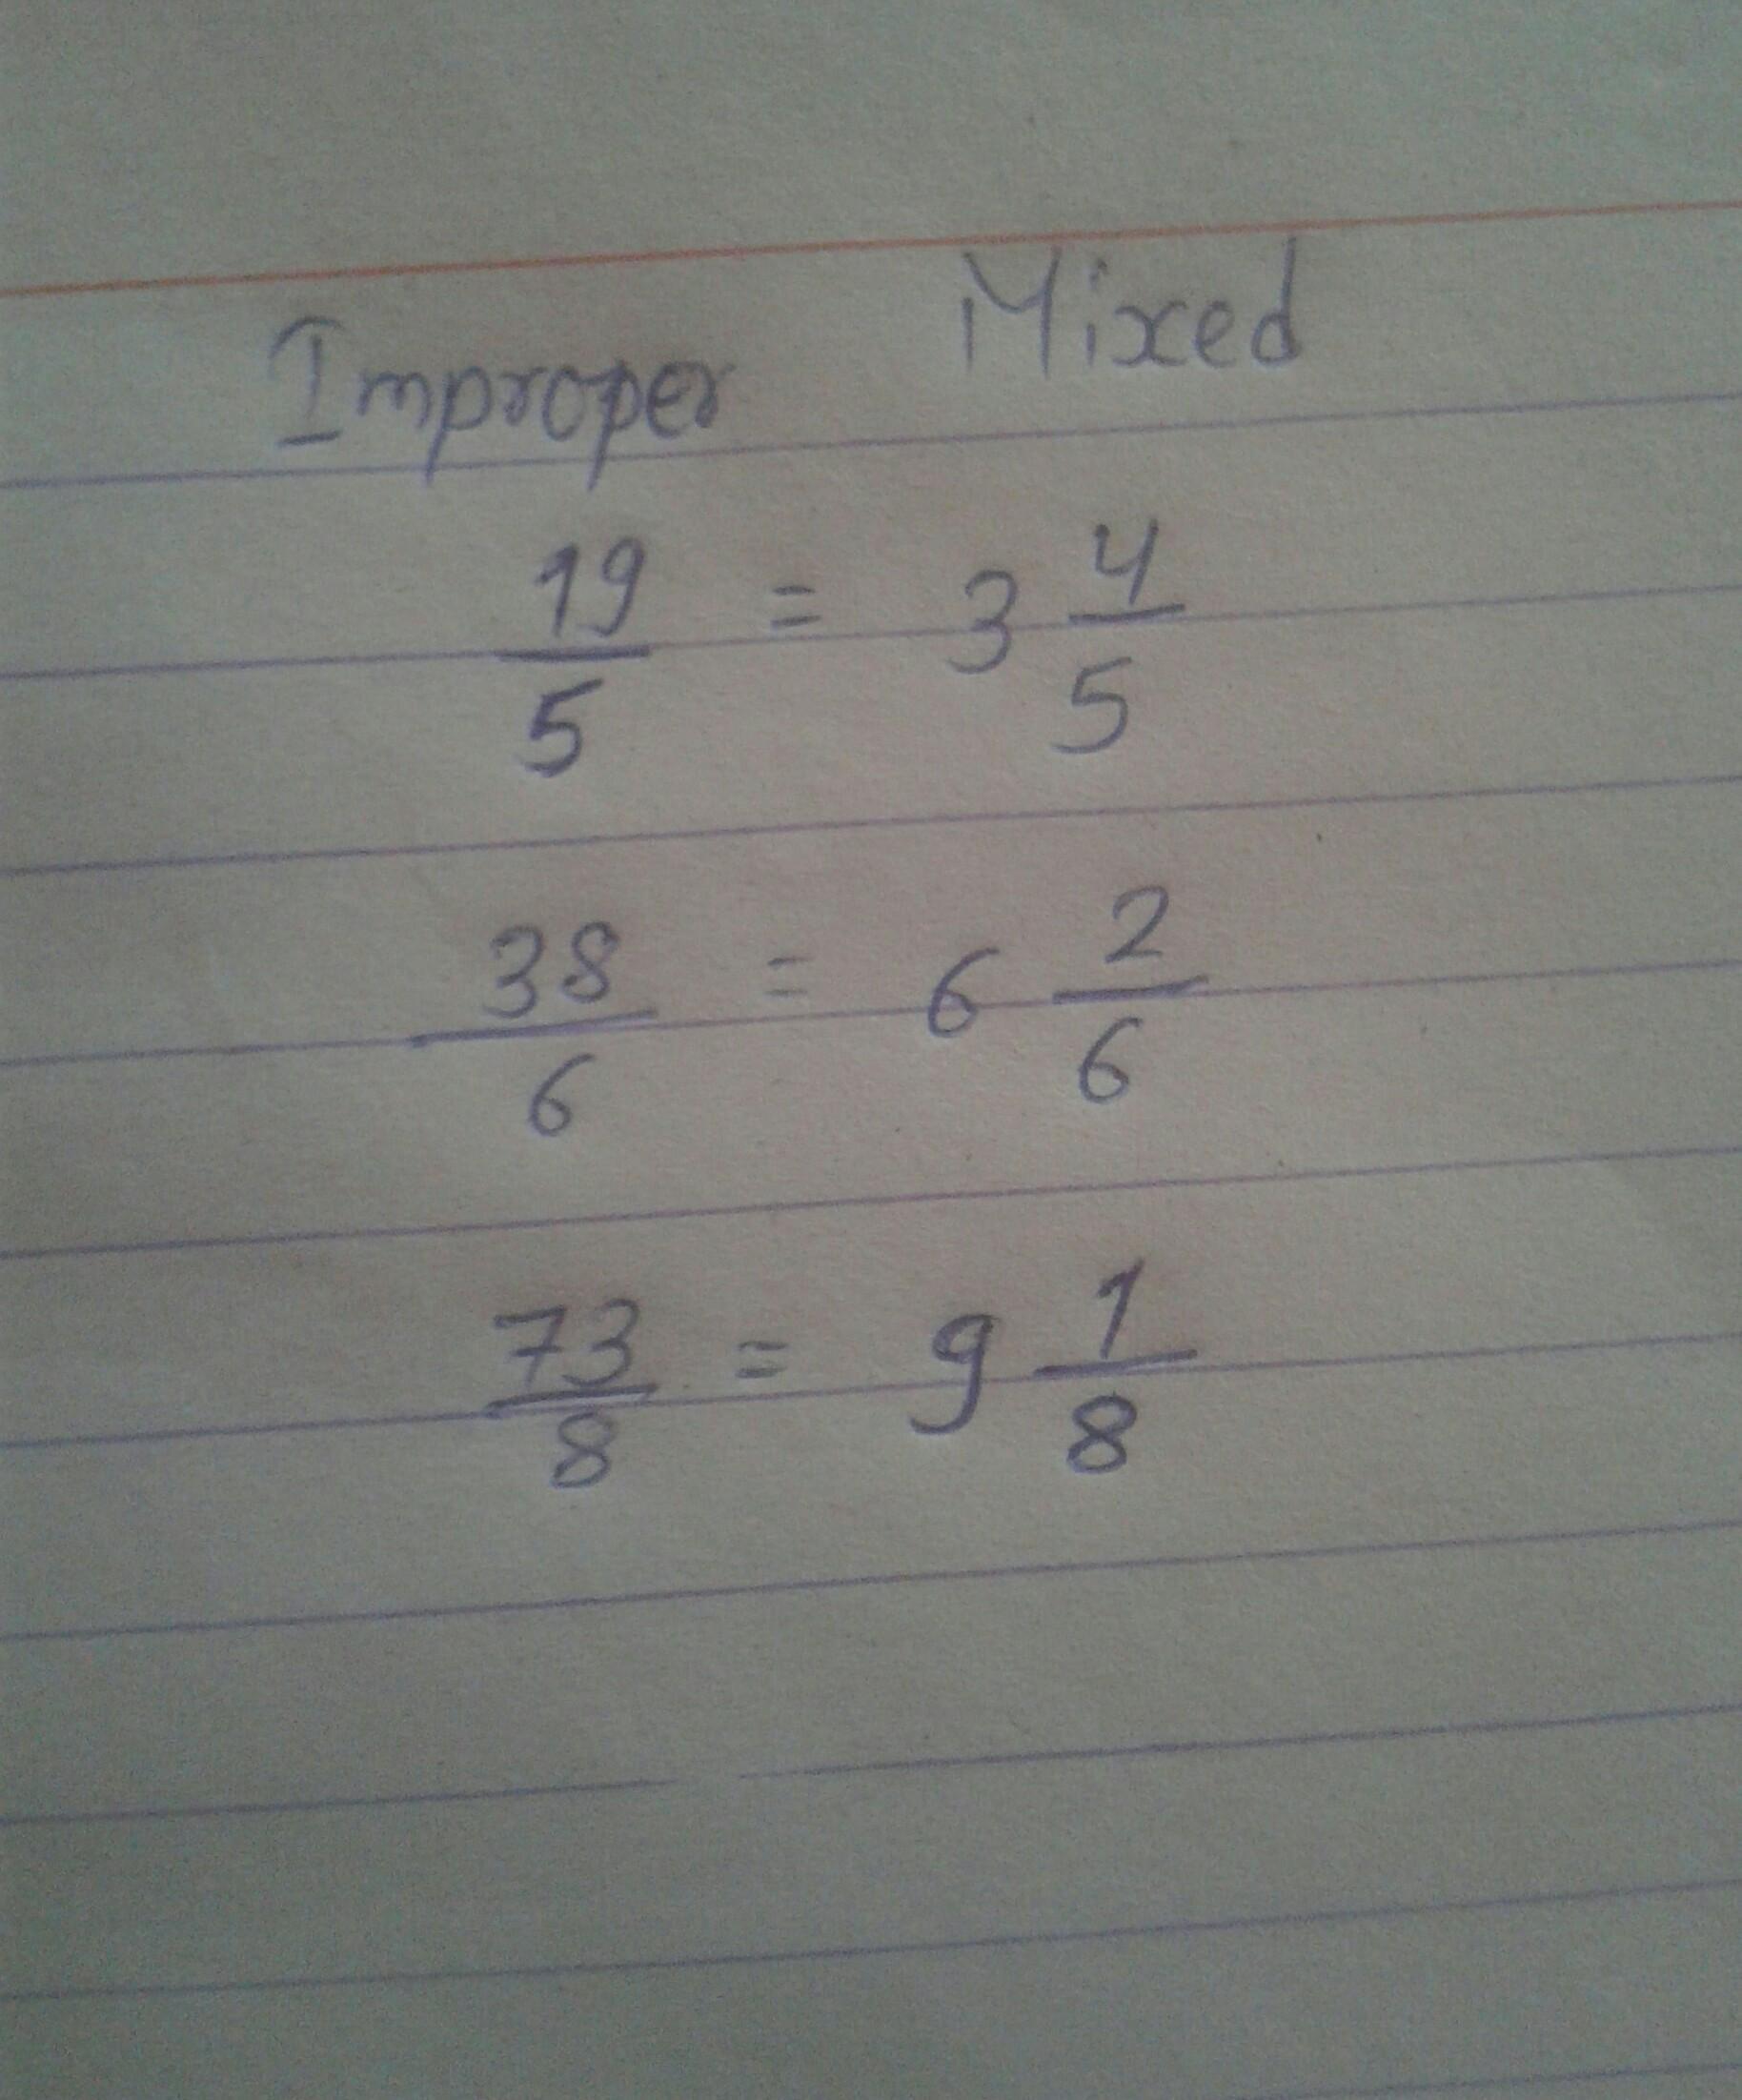 Improper Mixed
19/5 = 3 4/5
38/6 = 6 2/6
73/8 = 9 1/8